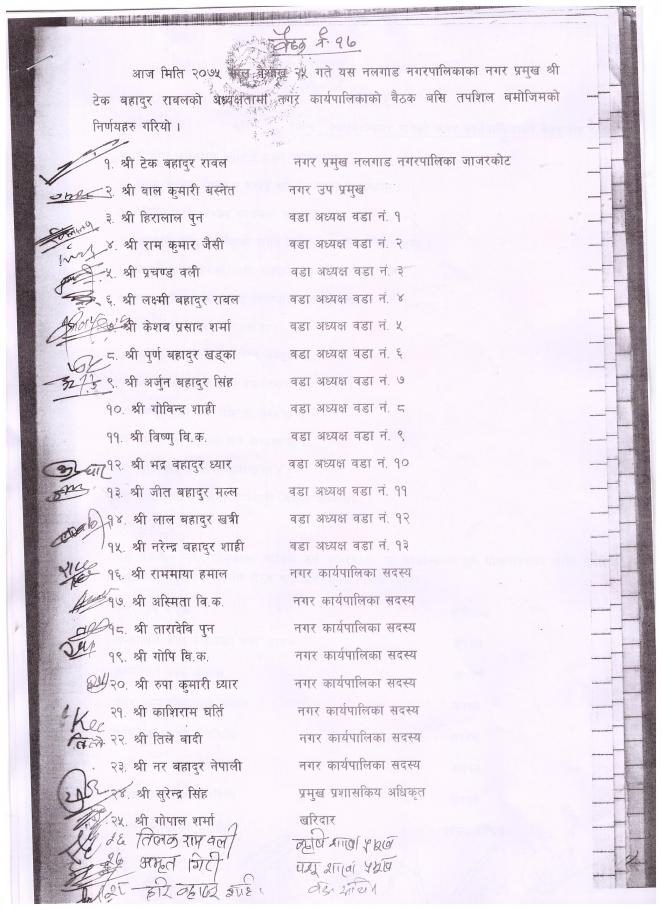 बैठक नं. १७
आज मिति २०७५ साल बैशाख २५ गते यस नलगाड नगरपालिकाका नगर प्रमुख श्री
टेक बहादुर रावलको अध्यक्षतामा नगर कार्यपालिकाको बैठक बसि तपशिल बमोजिमको
निर्णयहरु गरियो ।
१. श्री टेक बहादुर रावल नगर प्रमुख नलगाड नगरपालिका जाजरकोट
२. श्री बाल कुमारी बस्नेत नगर उप प्रमुख
३. श्री हिरालाल पुन वडा अध्यक्ष वडा नं. १
४. श्री राम कुमार जैसी वडा अध्यक्ष वडा नं. २
५. श्री प्रचण्ड वली वडा अध्यक्ष वडा नं. ३
६. श्री लक्ष्मी बहादुर रावल वडा अध्यक्ष वडा नं. ४
७. श्री केशब प्रसाद शर्मा वडा अध्यक्ष वडा नं. ५
८. श्री पुर्ण बहादुर खड्का वडा अध्यक्ष वडा नं. ६
९. श्री अर्जुन बहादुर सिंह वडा अध्यक्ष वडा नं. ७
१०. श्री गोविन्द शाही वडा अध्यक्ष वडा नं. ८
११. श्री विष्णु वि.क. वडा अध्यक्ष वडा नं. ९
१२. श्री भद्र बहादुर ध्यार वडा अध्यक्ष वडा नं. १०
१३. श्री जीत बहादुर मल्ल वडा अध्यक्ष वडा नं. ११
१४. श्री लाल बहादुर खत्री वडा अध्यक्ष वडा नं. १२
१५. श्री नरेन्द्र बहादुर शाही वडा अध्यक्ष वडा नं. १३
१६. श्री राममाया हमाल नगर कार्यपालिका सदस्य
१७. श्री अस्मिता वि.क. नगर कार्यपालिका सदस्य
१८. श्री तारादेवि पुन नगर कार्यपालिका सदस्य
१९. श्री गोपि वि.क. नगर कार्यपालिका सदस्य
२०. श्री रुपा कुमारी ध्यार नगर कार्यपालिका सदस्य
२१. श्री काशिराम घर्ति नगर कार्यपालिका सदस्य
तिले २२. श्री तिले बादी नगर कार्यपालिका सदस्य
२३. श्री नर बहादुर नेपाली नगर कार्यपालिका सदस्य
२४. श्री सुरेन्द्र सिंह प्रमुख प्रशासकिय अधिकृत
२५. श्री गोपाल शर्मा खरिदार
२६ तिलक राम वली कृषि शाखा प्रमुख
२७ अमृत गिरी पशु शाखा प्रमुख
हरि बहादुर शाही